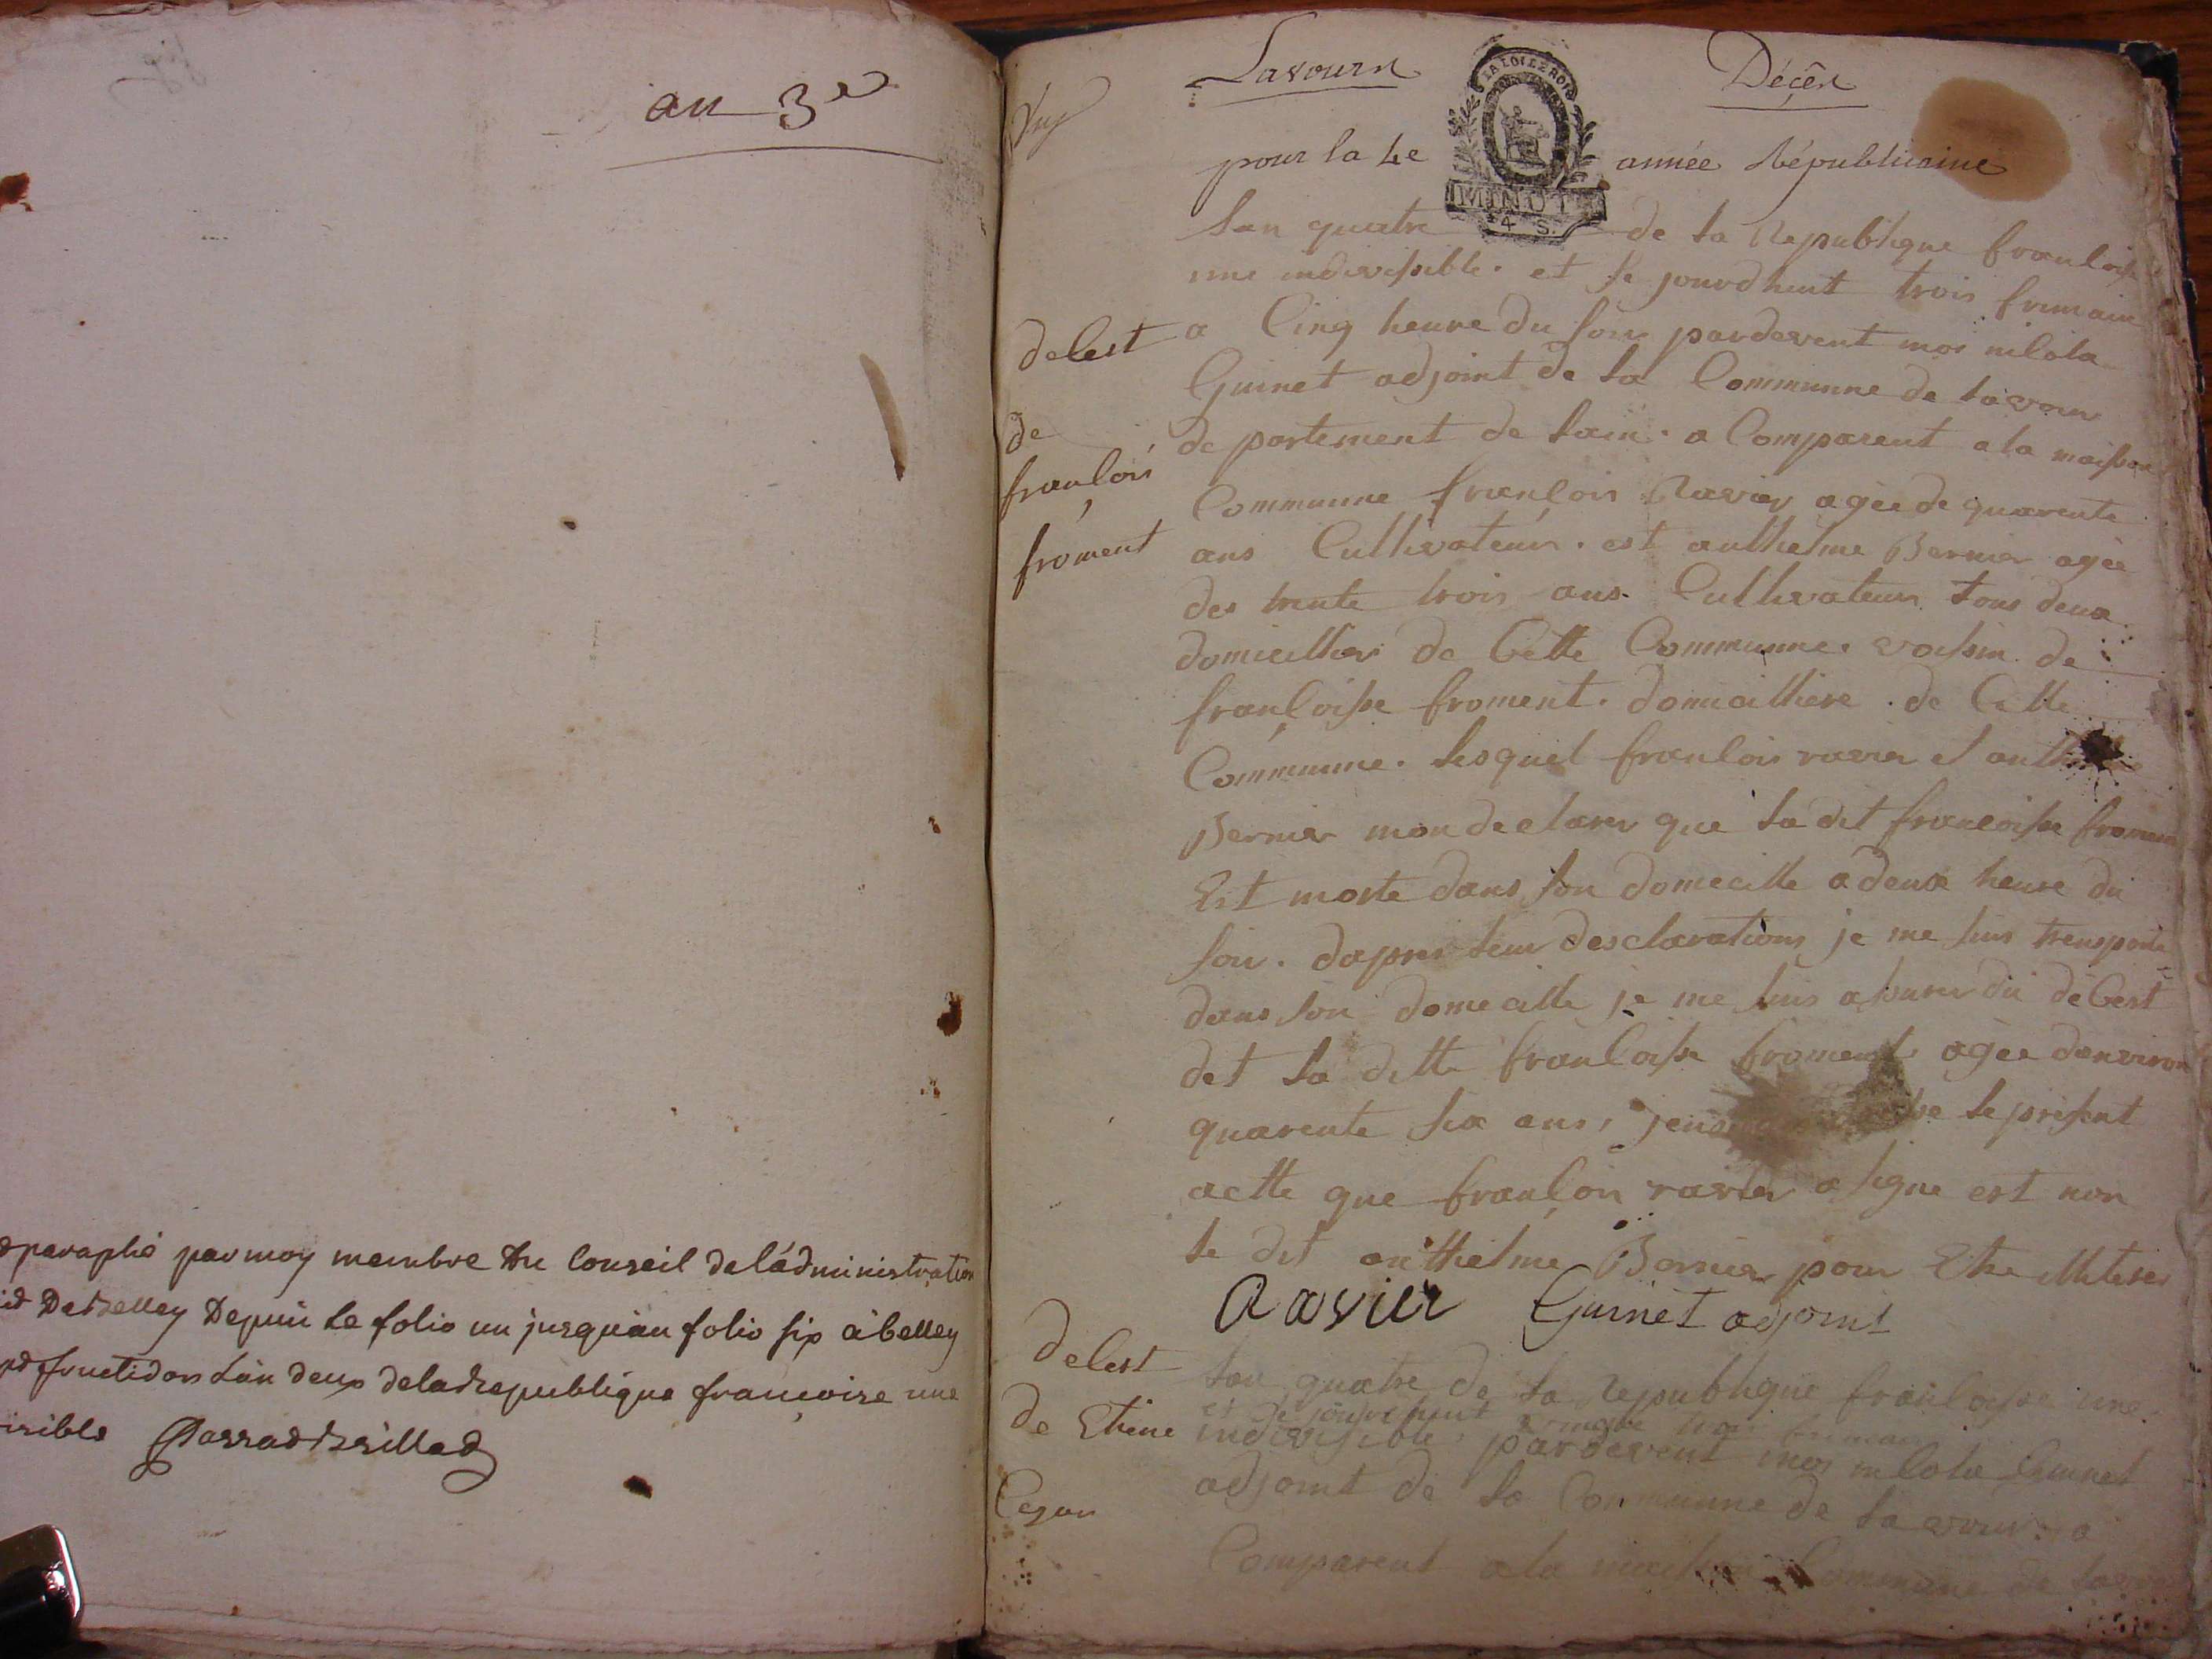 an 3e
paraphé par moy membre Du Conseil de l'administration
De Belley Depuis le folio un jusqu'au folio six à belley
fructidor L'an deux de la Republique françoise une
isible
Lavourn
Décès
LA LOI LE ROI
MINUT
4 S.
pour la 4e année Républicaine
Lan quatre de La Republique francloisse
une indivissible. et le jourdhuit trois frimaire
a Cinq heure du soir pardevent moi nilola
Guinet adjoint de La Communne de Lavour
de partement de Lain. a Comparent a la maisson
Communne françois Ravier agée de quarente
ans Cultivateur. est anthelme Bernier agée
des trente trois ans Cultivateur tous deux
domicillier de Cette Communne. voissin de
françoisse froment. domicilliere. de Cette
Communne. Lesquel franlois ravier et anth
Bernier mon declarer que La dit francoisse froment
Est morte dans son domecille a deux heure du
soir. dapres leur desclarations je me suis trensporte
dans son domecille je me suis assurer du deCest
det La ditte franloisse froment. agée denviron
quarente six ans, le present
actte que françois ravier a signe est non
Le dit anthelme Bernier pour Etre illiterer
Ravier Guinet adjoint
delest
de
franlois
froment
delest
de Etiene
Lan quatre de La Republique franloysse une
et le jourdhuit
indivisible, pardevent moi nilola Guinet
adjoint de La Communne de Lavour. a
Comparent a la Communne de